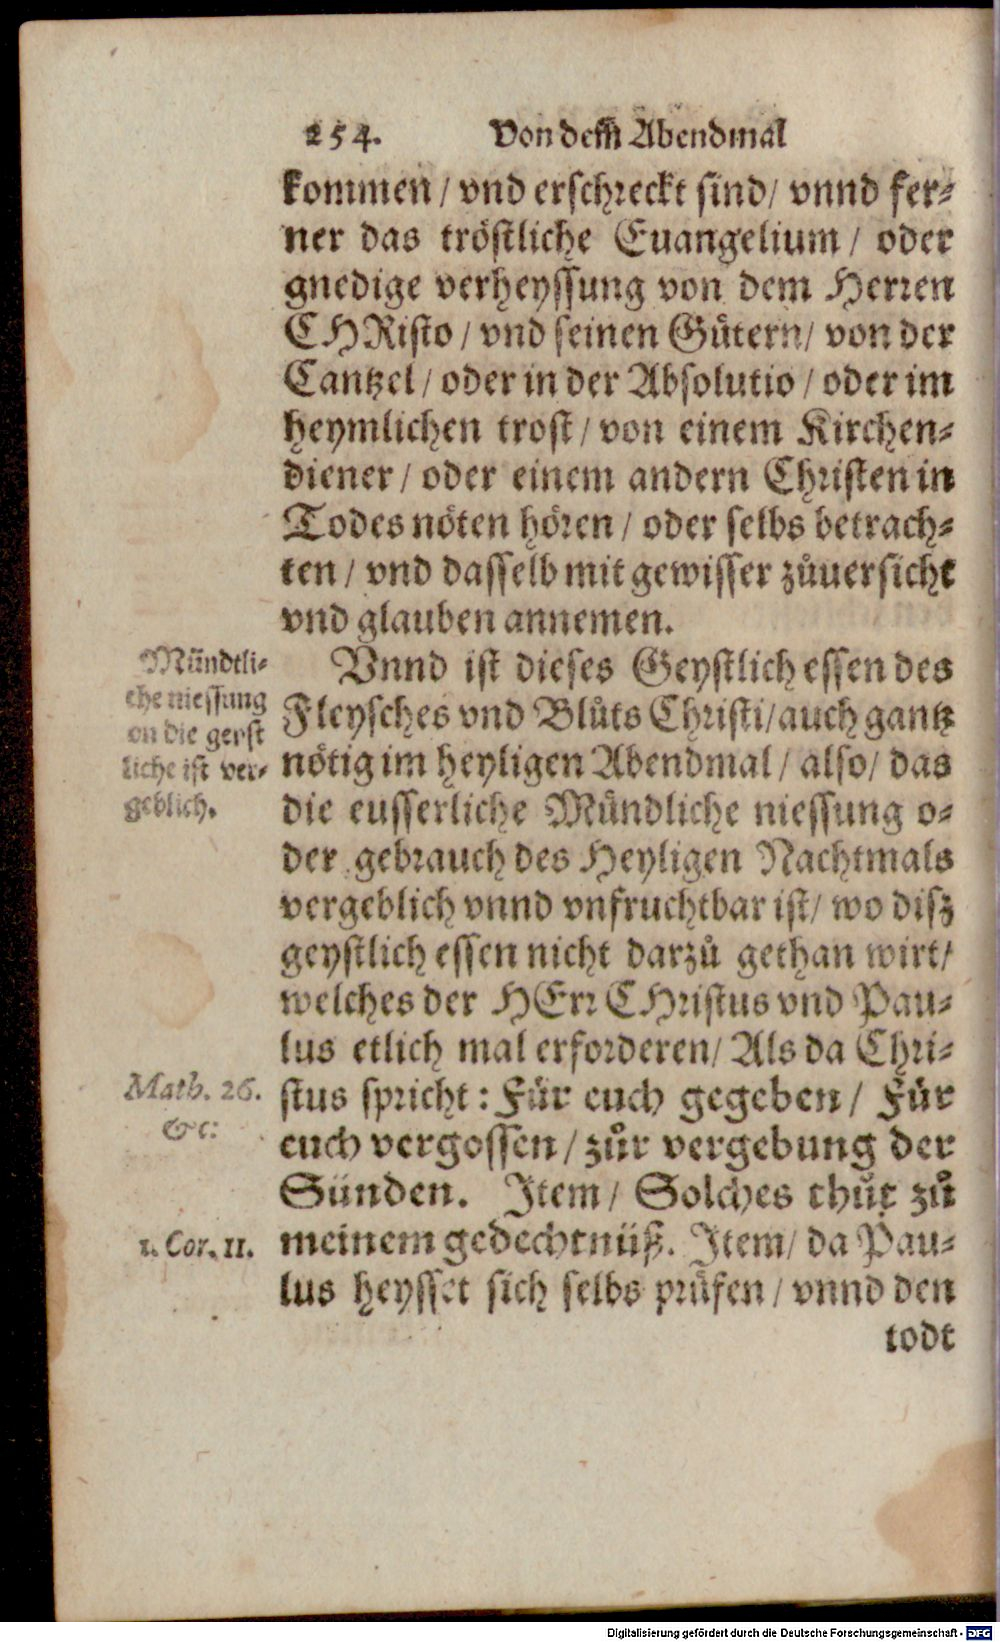 254. Von dem Abendmal
kommen / vnd erschreckt sind / vnnd fer⸗
ner das tröstliche Euangelium / oder
gnedige verheyssung von dem Herren
CHRisto / vnd seinen Gůtern / von der
Cantzel / oder in der Absolutio / oder im
heymlichen trost / von einem Kirchen⸗
diener / oder einem andern Christen in
Todes nöten hören / oder selbs betrach⸗
ten / vnd dasselb mit gewisser zůuersicht
vnd glauben annemen.
Mündtli⸗
che niessung
on die geyst
liche ist ver⸗
geblich.
Vnnd ist dieses Geystlich essen des
Fleysches vnd Blůts Christi / auch gantz
nötig im heyligen Abendmal / also / das
die eusserliche Mündliche niessung o⸗
der gebrauch des Heyligen Nachtmals
vergeblich vnnd vnfruchtbar ist / wo disz
geystlich essen nicht darzů gethan wirt /
welches der HErr CHristus vnd Pau⸗
lus etlich mal erforderen / Als da Chri⸗
Math. 26.
&c:
stus spricht : Für euch gegeben / Für
euch vergossen / zůr vergebung der
Sünden. Item / Solches thůt zů
1. Cor. 11.
meinem gedechtnüß. Item / da Pau⸗
lus heysset sich selbs prüfen / vnnd den
todt
Digitalisierung gefördert durch die Deutsche Forschungsgemeinschaft - DFG